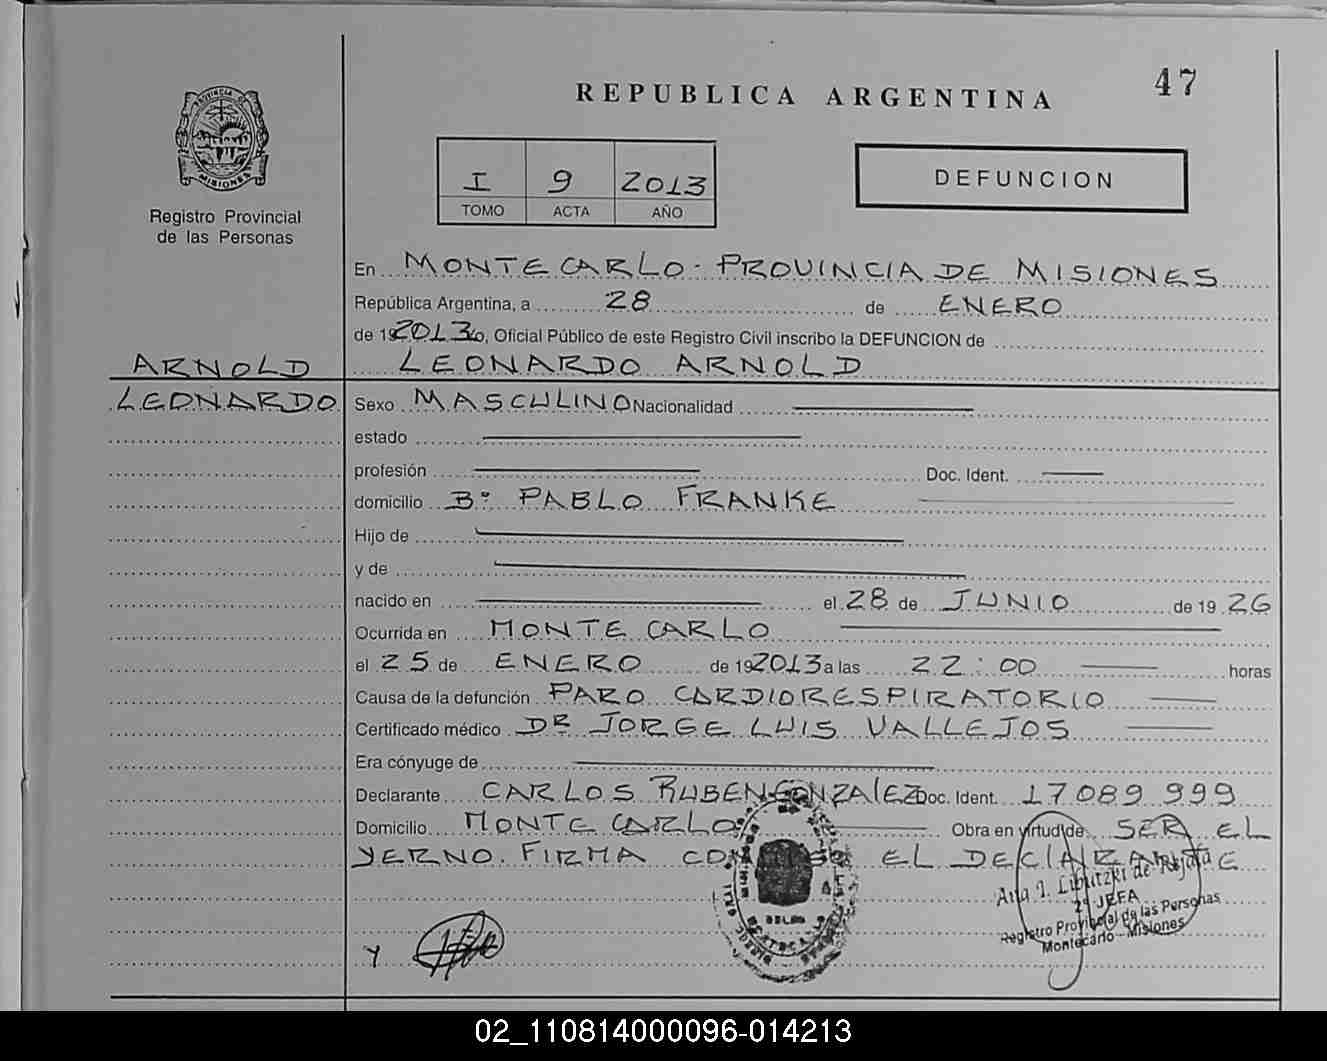 47
REPUBLICA ARGENTINA
PROVINCIA DE
MISIONES
Registro Provincial
de las Personas
I 9 2013
TOMO ACTA AÑO
DEFUNCION
En MONTECARLO - PROVINCIA DE MISIONES
República Argentina, a 28 de ENERO
de 192013 yo, Oficial Público de este Registro Civil inscribo la DEFUNCION de
ARNOLD LEONARDO ARNOLD
LEONARDO Sexo MASCULINO Nacionalidad
estado
profesión Doc. Ident.
domicilio Bº PABLO FRANKE
Hijo de
y de
nacido en el 28 de JUNIO de 19 26
Ocurrida en MONTE CARLO
el 25 de ENERO de 192013 a las 22:00 horas
Causa de la defunción PARO CARDIORESPIRATORIO
Certificado médico DR JORGE LUIS VALLEJOS
Era cónyuge de
Declarante CARLOS RUBEN GONZALEZ Doc. Ident. 17089999
Domicilio MONTE CARLO Obra en virtud de SER EL
YERNO. FIRMA CONMIGO EL DECLARANTE
Ana I. Liputzki de Rejala
2º JEFA
Registro Provincial de las Personas
Montecarlo - Misiones
Y
02_110814000096-014213